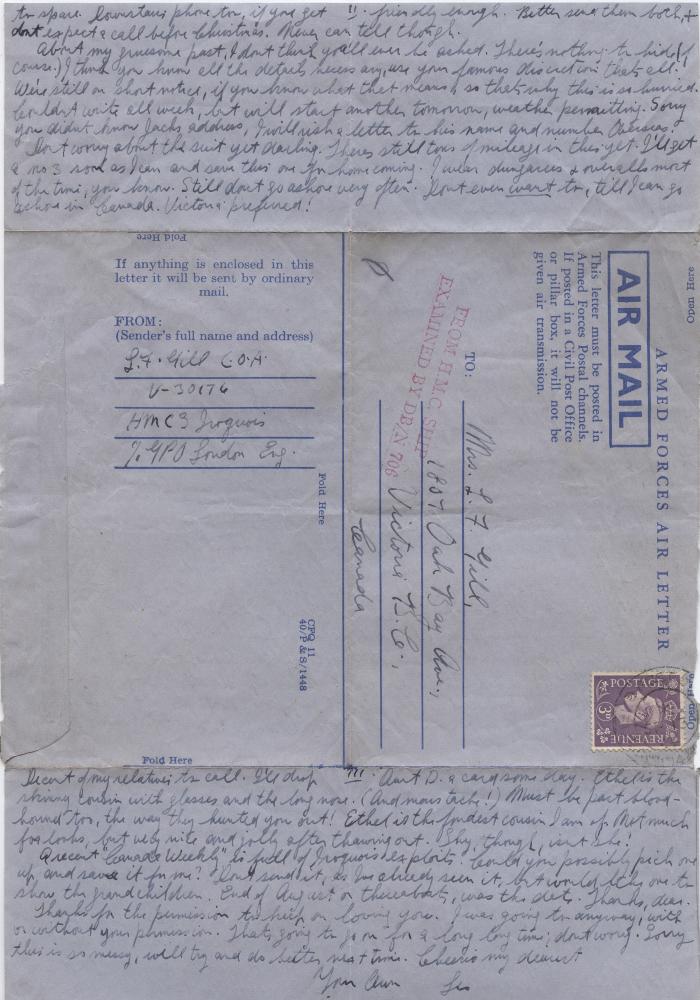 to spare. Downstairs phone too, if you get II. friendly enough. Better send them both, +
dont expect a call before Christmas. Never can tell though.
About my gruesome past, I dont think you'll ever be asked. There's nothing to hide (of
course.) I think you know all the details necessary, use your famous discretion thats all.
We're still on short notice, if you know what that means, so thats why this is so hurried.
Couldn't write all week, but will start another tomorrow, weather permitting. Sorry
you didn't know Jacks address, I will rush a letter to his name and number Overseas!
Dont worry about the suit yet darling. Theres still tons of mileage in this yet. I'll get
a no 3 soon as I can and save this one for homecoming. I wear dungarees & overalls most
of the time, you know. Still dont go ashore very often. Dont even want to, till I can go
ashore in Canada. Victoria preferred!
Fold Here
If anything is enclosed in this
letter it will be sent by ordinary
mail.
FROM:
(Sender's full name and address)
L.F. Gill E.O.A.
V-30176
HMCS Iroquois
% GPO London Eng.
Fold Here
CFQ 11
40/P & S/1448
Fold Here
Open Here
ARMED FORCES AIR LETTER
AIR MAIL
This letter must be posted in
Armed Forces Postal channels.
If posted in a Civil Post Office
or pillar box, it will not be
given air transmission.
TO:
Mrs. L. F. Gill,
1807 Oak Bay Ave.,
Victoria B.C.,
Canada
FROM H.M.C. SHIP
EXAMINED BY DB/N 706
Open Here
POSTAGE
3D
REVENUE
Decent of my relatives to call. I'll drop III. Aunt D. a card some day. Ethel is the
skinny cousin with glasses and the long nose. (And moustache!) Must be part blood-
hound too, the way they hunted you out! Ethel is the fondest cousin I am of. Not much
for looks, but very nice and jolly after thawing out. Shy, though, isn't she.
A recent "Canada Weekly" is full of Iroquois exploits. Could you possibly pick one
up, and save it for me? Dont send it, as I've already seen it, but would like one to
show the grandchildren. End of August or thereabouts, was the date. Thanks, dear.
Thanks for the permission to keep on loving you. I was going to anyway, with
or without your permission. Thats going to go on for a long long time; dont worry. Sorry
this is so messy, will try and do better next time. Cheerio my dearest
Your Own Les